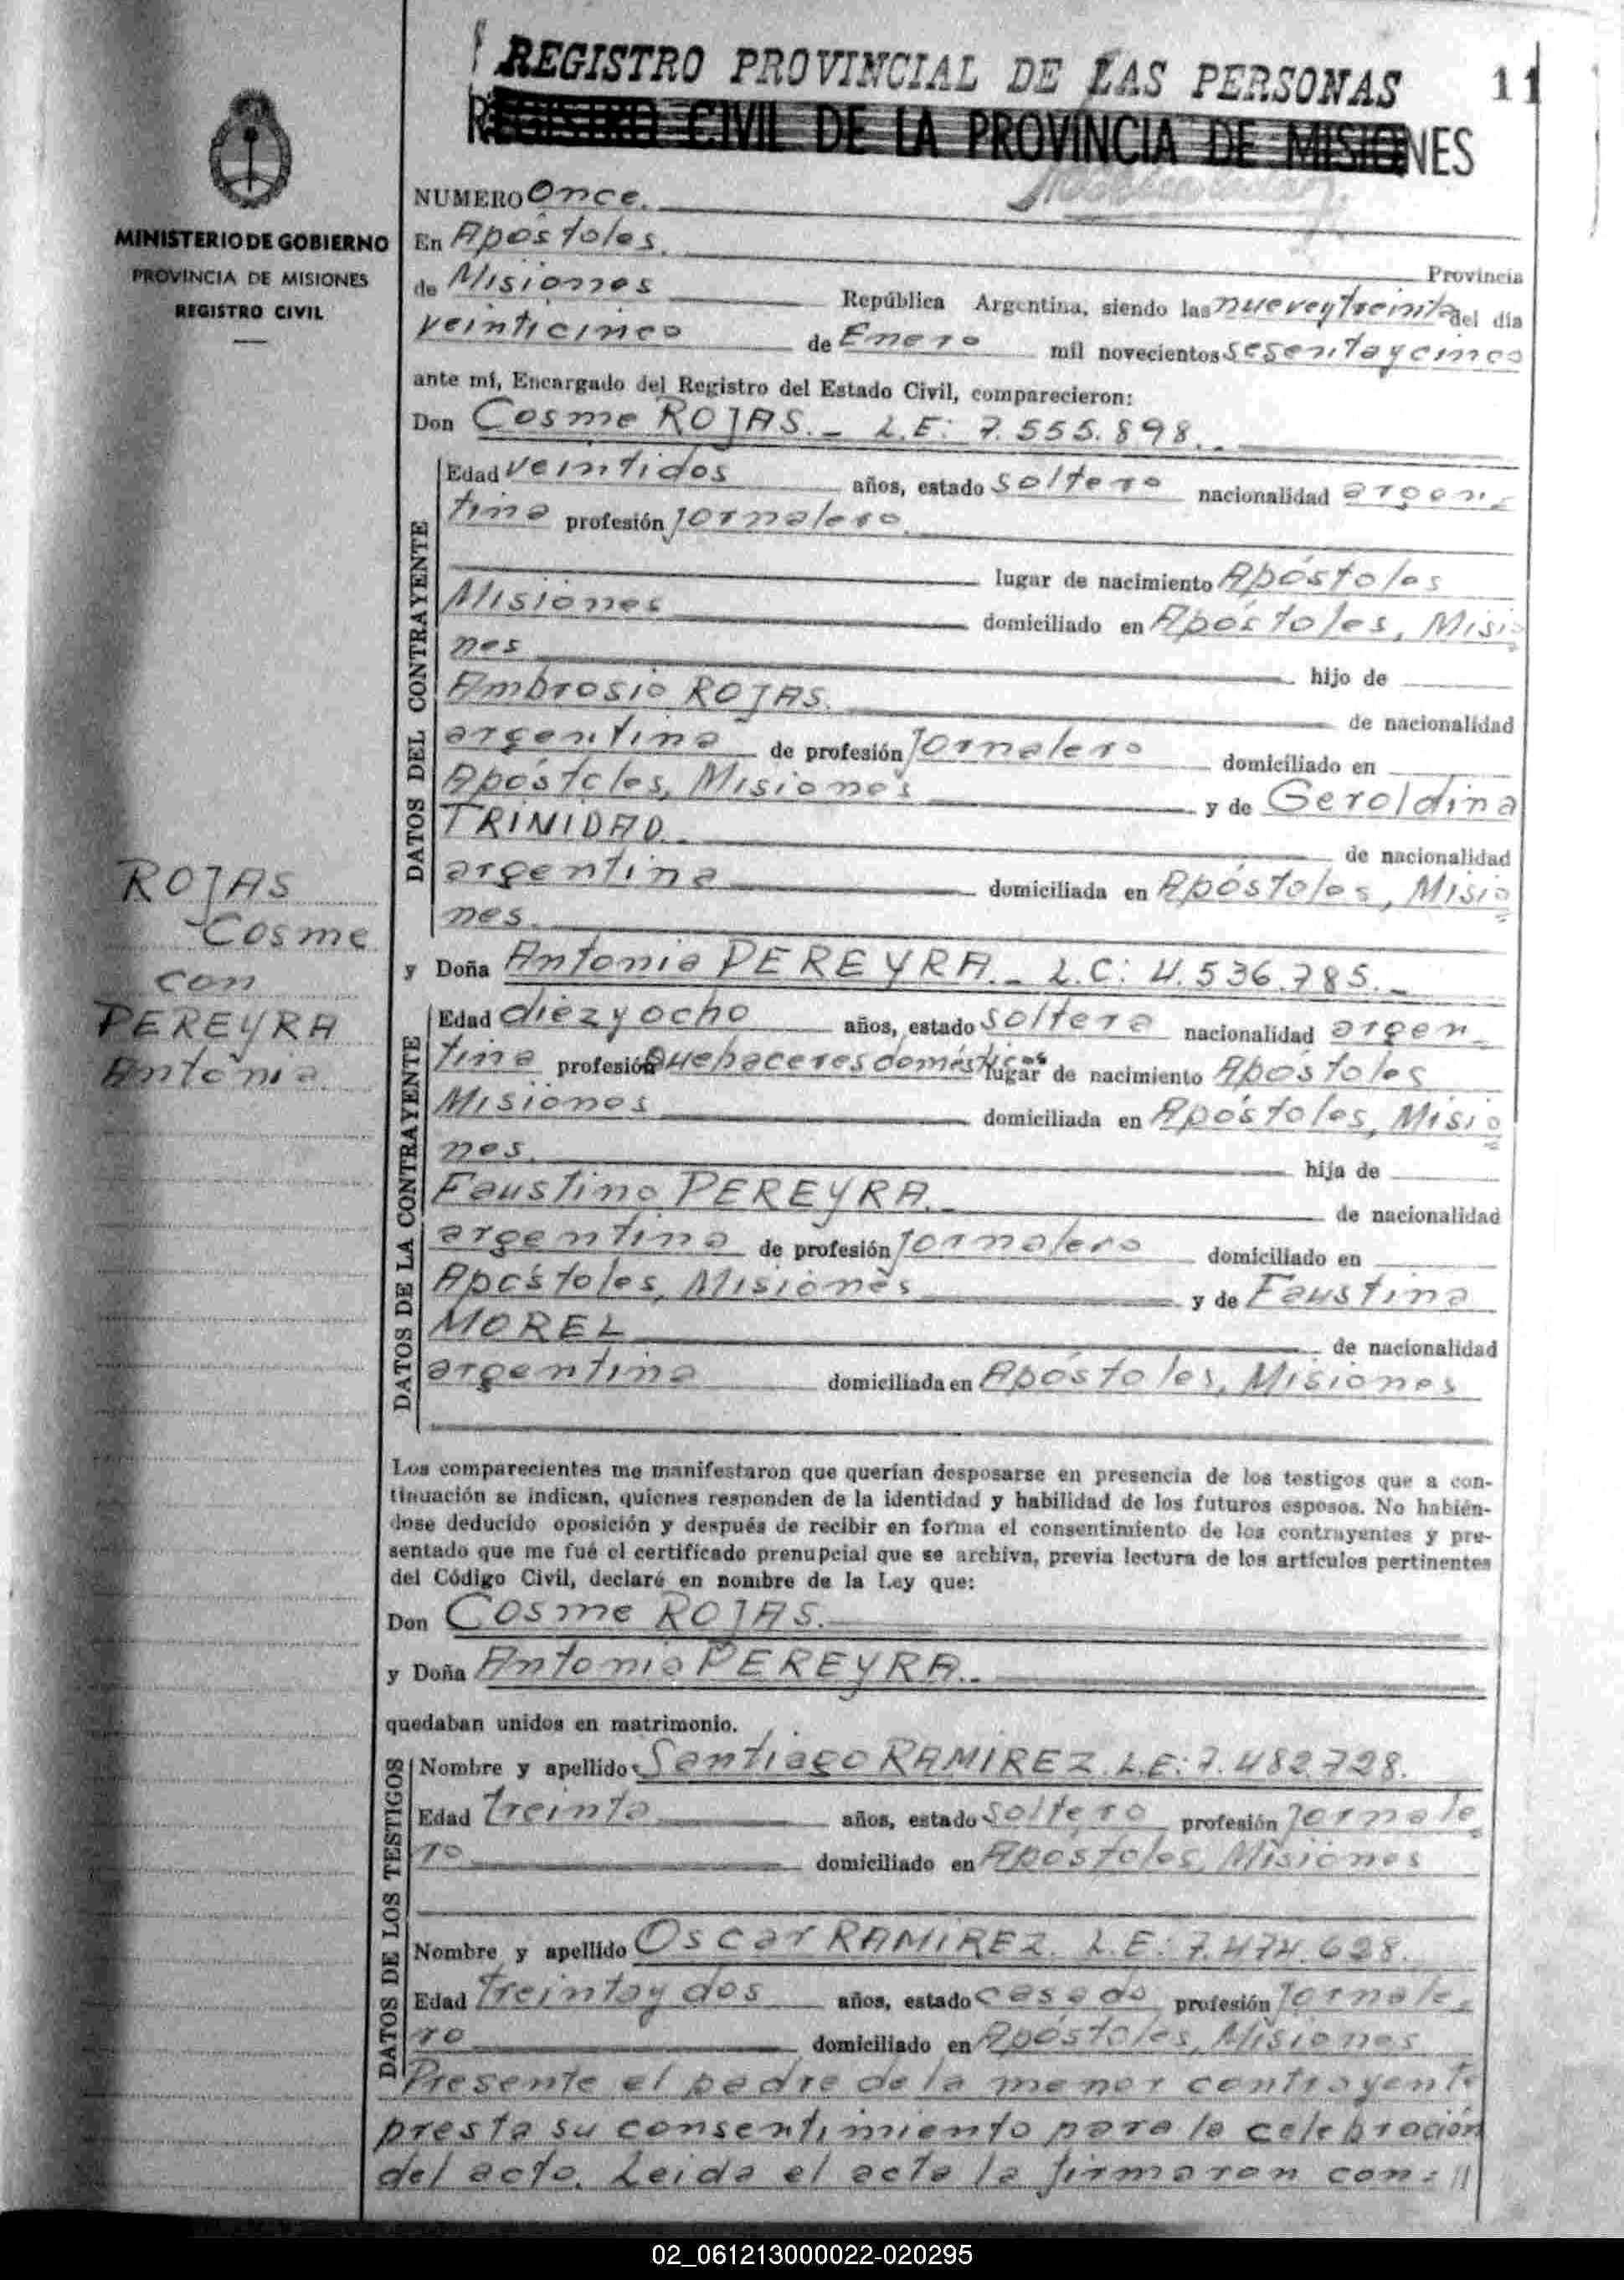 REGISTRO PROVINCIAL DE LAS PERSONAS 11
REGISTRO CIVIL DE LA PROVINCIA DE MISIONES
MINISTERIO DE GOBIERNO
PROVINCIA DE MISIONES
REGISTRO CIVIL
ROJAS
Cosme
con
PEREYRA
Antonia
NUMERO Once.
En Apóstoles. Provincia
de Misiones República Argentina, siendo las nueve y treinta del día
veinticinco de Enero mil novecientos sesenta y cinco
ante mí, Encargado del Registro del Estado Civil, comparecieron:
Don Cosme ROJAS.- L.E: 7.555.898.
DATOS DEL CONTRAYENTE
Edad veintidos años, estado soltero nacionalidad argen-
tina profesión jornalero.
lugar de nacimiento Apóstoles
Misiones domiciliado en Apóstoles, Misio
nes hijo de
Ambrosio ROJAS. de nacionalidad
argentina de profesión jornalero domiciliado en
Apóstoles, Misiones y de Geroldina
TRINIDAD. de nacionalidad
argentina domiciliada en Apóstoles, Misio=
nes.
y Doña Antonia PEREYRA.- L.C: 4.536.785.-
DATOS DE LA CONTRAYENTE
Edad diez y ocho años, estado soltera nacionalidad argen-
tina profesión Quehaceres domésticos lugar de nacimiento Apóstoles
Misiones domiciliada en Apóstoles, Misio=
nes. hija de
Faustino PEREYRA. de nacionalidad
argentina de profesión jornalero domiciliado en
Apóstoles, Misiones y de Faustina
MOREL de nacionalidad
argentina domiciliada en Apóstoles, Misiones
Los comparecientes me manifestaron que querían desposarse en presencia de los testigos que a con-
tinuación se indican, quienes responden de la identidad y habilidad de los futuros esposos. No habién-
dose deducido oposición y después de recibir en forma el consentimiento de los contrayentes y pre-
sentado que me fué el certificado prenupcial que se archiva, previa lectura de los artículos pertinentes
del Código Civil, declaré en nombre de la Ley que:
Don Cosme ROJAS.
y Doña Antonia PEREYRA.-
quedaban unidos en matrimonio.
DATOS DE LOS TESTIGOS
Nombre y apellido Santiago RAMIREZ. L.E: 7.482.728.
Edad treinta años, estado soltero profesión jornale
ro domiciliado en Apóstoles, Misiones
Nombre y apellido Oscar RAMIREZ. L.E: 7.474.628.
Edad treinta y dos años, estado casado profesión jornale-
ro domiciliado en Apóstoles, Misiones
Presente el padre de la menor contrayente
presta su consentimiento para la celebración
del acto. Leida el acta la firmaron con: //
02_061213000022-020295